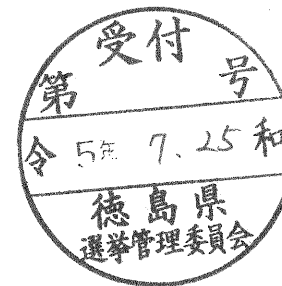 受付
第 号
令 5年 7、25 和
徳島県
選挙管理委員会